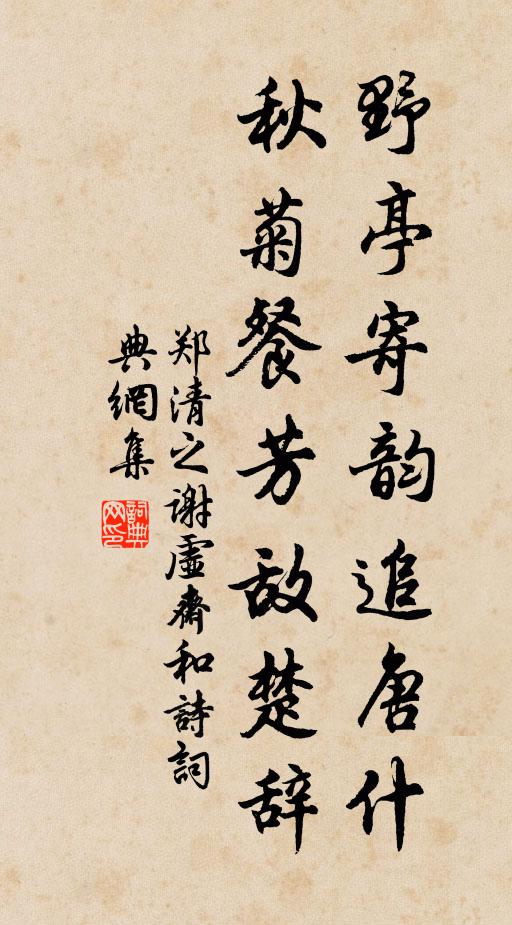 野亭寄韵追唐什
秋菊餐芳敌楚辞
郑清之谢虚斋和詩詞
典網集
詞典
网印